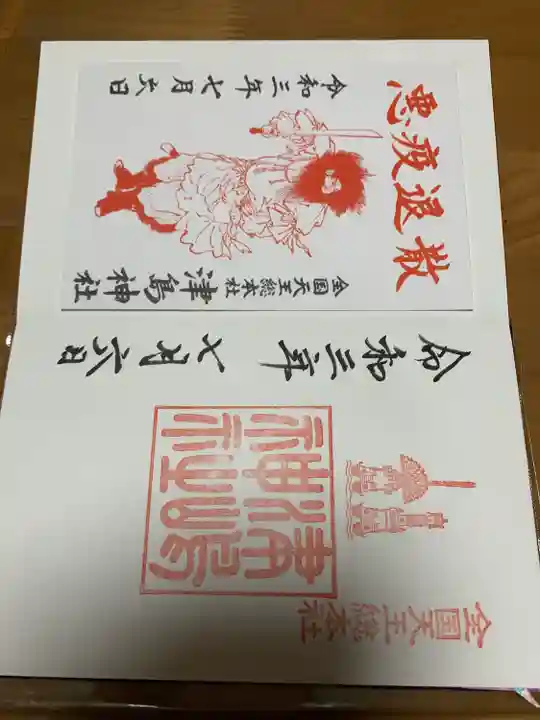 悪疫退散
令和三年七月六日
全国天王総本社
津島神社
令和三年 七月六日
全国天王総本社
津嶋
神社